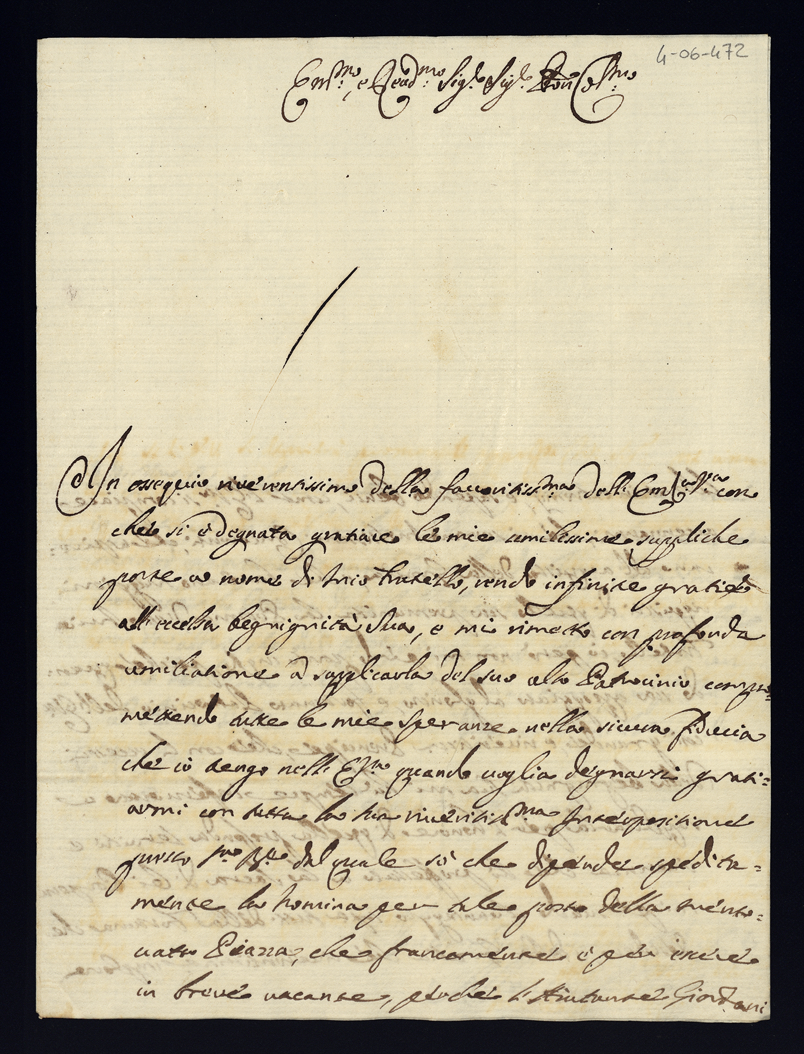 4-06-472
Em.mo, e Rev.mo Sig.r Sig.r Pron Col.mo
In ossequio riverentissimo della favoritiss.ma dell' Em.a V.a con
che si è degnata gratiare le mie umilissime suppliche
porte a nome di mio fratello, rendo infinite gratie
all' eccelsa begnignità Sua, e mi rimetto con profonda
umiliatione a supplicarla del suo alto Patrocinio compro=
mettendo tutte le mie speranze nella sicura fiducia
che io tengo nell' E.V. quando voglia degnarsi grati=
armi con tutta la sua riveritiss.ma Interpositione
presso dal quale so che dipende spedita=
mente la nomina per tale posto della mento=
vata Piazza, che francamente è per essere
in breve vacante, poiche l'Aiutante Giordani